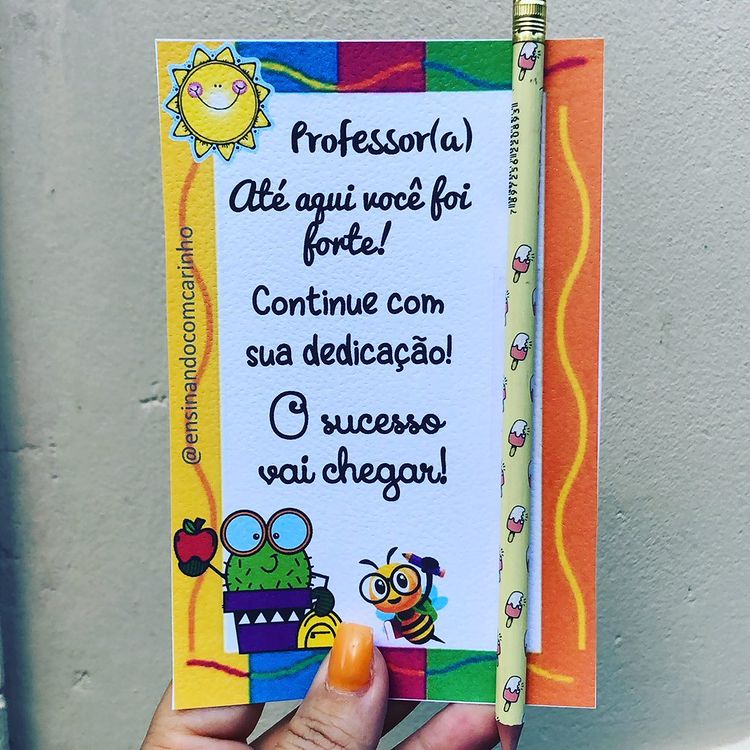 Professor(a)
Até aqui você foi
forte!
Continue com
sua dedicação!
O sucesso
vai chegar!
@ensinandocomcarinho